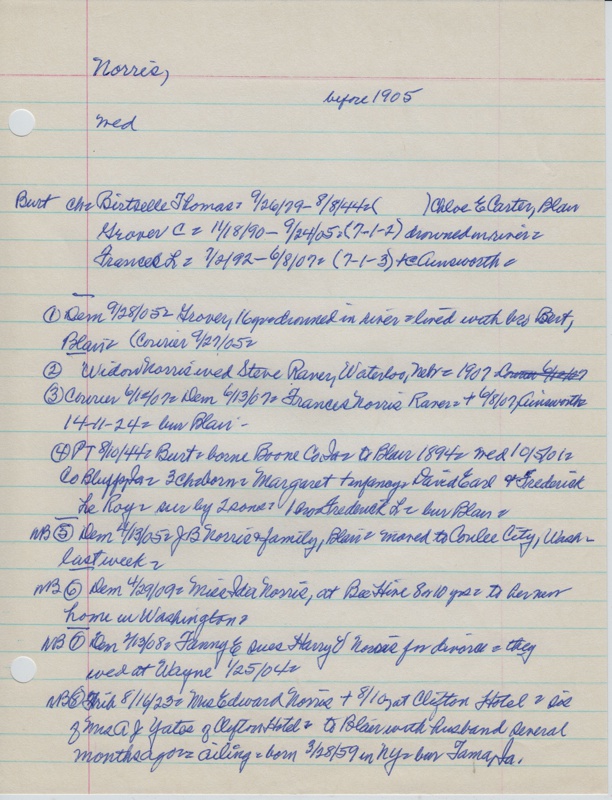 Norris,
before 1905
wed
Burt ch= Birtselle Thomas= 9/26/79-8/8/44=( ) Chloe E Carter, Blair
Grover C = 11/18/90- 9/24/05=(7-1-2) drowned in river=
Frances L = 7/2/92-6/8/07= (7-1-3) + @ Ainsworth=
① Dem 9/28/05= Grover, 16 yo= drowned in river= lived with bro Bert,
Blair= (Courier 9/27/05=
② Widow Norris wed Steve Raner, Waterloo, Nebr= 1907
③ Courier 6/14/07= Dem 6/13/07= Frances Norris Raner= + 6/8/07, Ainsworth
14-11-24= bur Blair-
④ PT 8/10/44= Burt= borne Boone Co. Ia= to Blair 1894= wed 10/5/01=
Co Bluff, Ia= 3 ch born= Margaret + infancy= David Earl & Frederick
Le Roy= sur by 2 sons= 1 bro Frederick L= bur Blair=
NB ⑤ Dem 4/13/05= J B Norris & family, Blair= moved to Coulee City, Wash-
last week=
NB ⑥ Dem 4/29/09= Miss Ida Norris, at Bee Hive 8 or 10 yrs= to her new
home in Washington=
NB ⑦ Dem 2/13/08= Fanny E sues Harry V Norris for divorce= they
wed at Wayne 1/25/04=
NB ⑧ Trib 8/16/23= Mrs Edward Norris + 8/10, at Clifton Hotel= sis
of Mrs A J Yates of Clifton Hotel= to Blair with husband several
months ago= ailing= born 3/28/59 in NY= bur Tama, Ia.